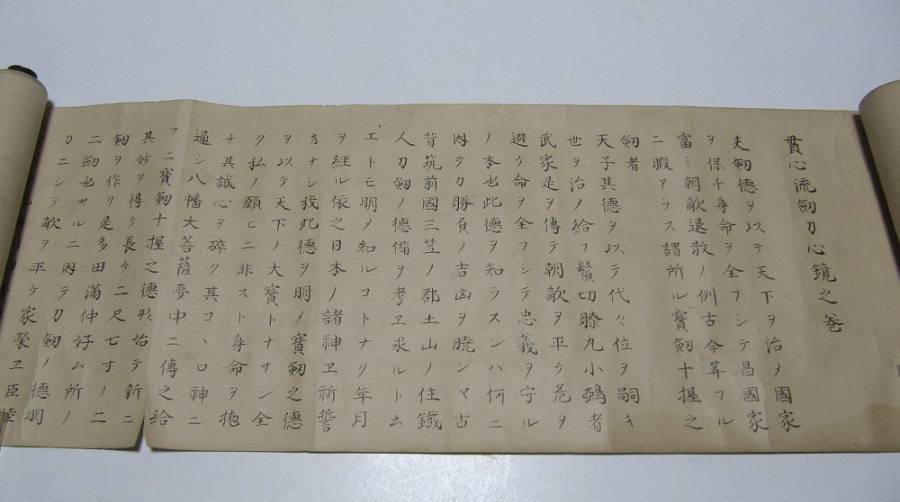 貫心流劔刀心鏡之巻
夫劔德ヲ以テ天下ヲ治メ國家
ヲ保チ身命ヲ全フシテ昌國家
富ミ朝敵退散ノ例古今筭フル
ニ暇アラス謂所ル寳劔十握之
劔者
天子其德ヲ以テ代々位ヲ嗣キ
世ヲ治メ給フ鬚切膝丸小鵶者
武家是ヲ傳テ朝敵ヲ平ケ危ヲ
遁ケ命ヲ全フシテ忠義ヲ守ル
ノ本也此德ヲ知ラスンハ何ニ
因テカ勝負ノ吉凶ヲ暁ンマ古
昔筑前國三笠ノ郡土山ノ住鐵
人刀劔ノ德備ヲ考ヱ求ルトム
エトモ明ノ知ルコトナリ年月
ヲ経ル依之日本ノ諸神ヱ祈誓
ナシ我此德ヲ明メ寳劔之德
ヲ以テ天下ノ大寳トナサン全
ク私ノ願ヒニ非スト身命ヲ抱
チ其誠心ヲ碎ク其コヽロ神ニ
通シ八幡大菩薩夢中ニ傳之給
フ二寳劔十握之德於始テ新ニ
其妙ヲ得テ長ケ二尺七寸ノ二
劔ヲ作リ是多田滿仲好ム所ノ
二劔也サルニ因テ刀劔ノ德明
カニシテ敵ヲ平ケ家榮ヱ臣